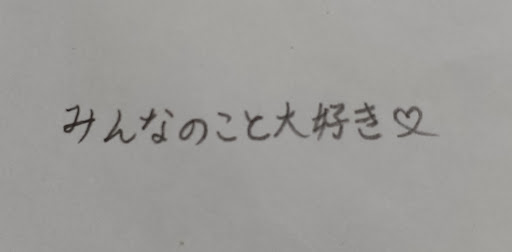 みんなのこと大好き♡